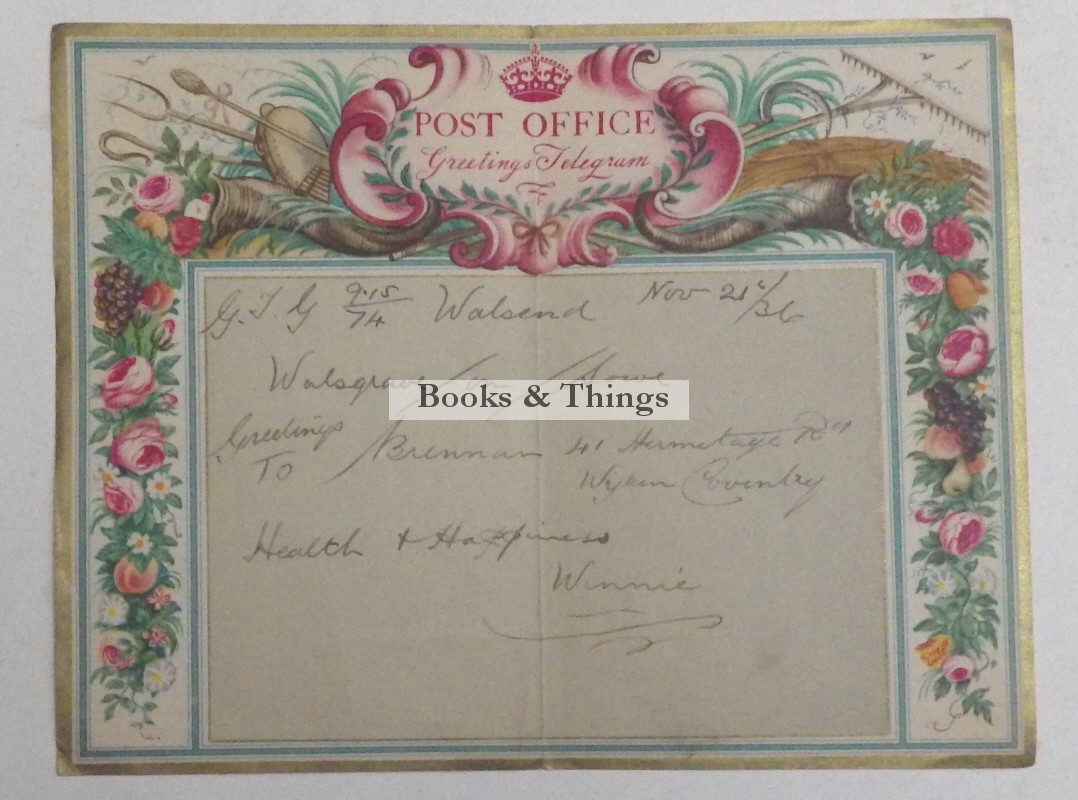 POST OFFICE
Greetings Telegram
G.T.G 9.15/74 Walsend Nov 21st/36
Walsgrave on Sowe
Books & Things
Greetings To Brennan 41 Hermitage Rd
Wyken Coventry
Health & Happiness
Winnie